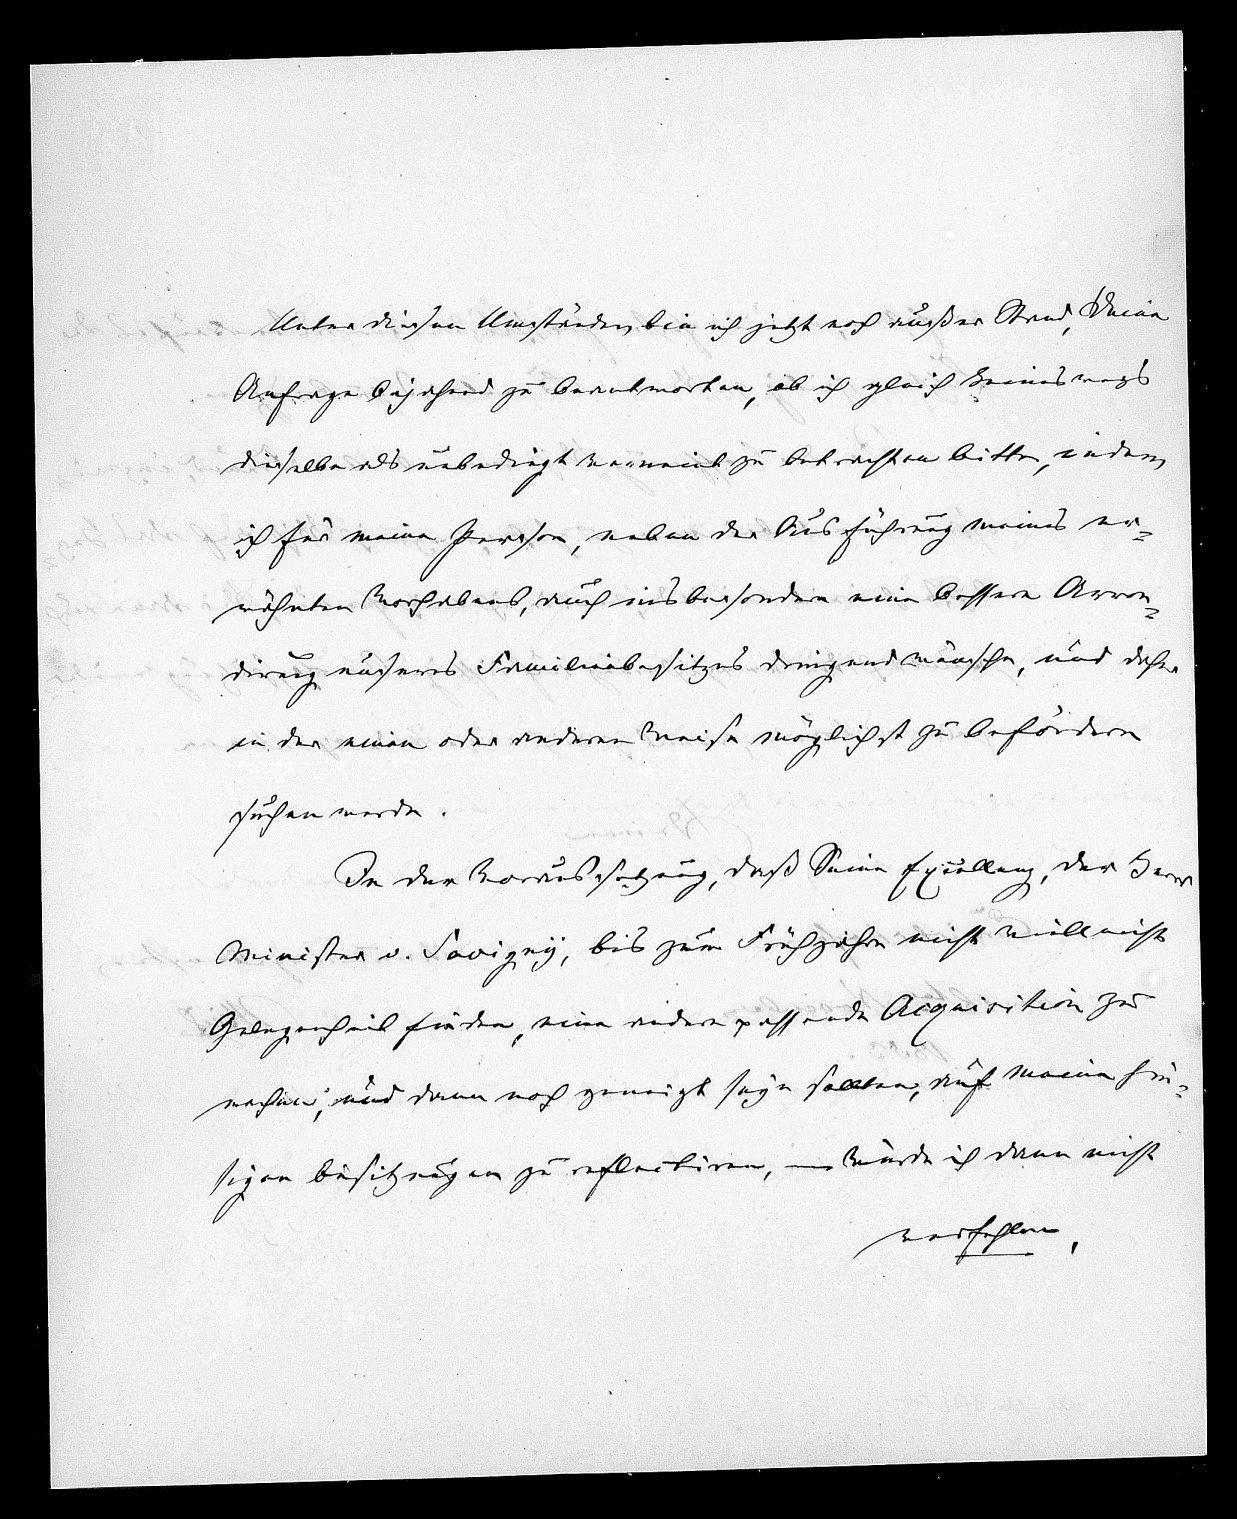 Unter diesen Umständen bin ich jetzt noch außer Stand, Deine
Anfrage bejahend zu beantworten, ob ich gleich keineswegs
dieselbe als unbedingt verneint zu betrachten bitte, indem
ich für meine Person, neben der Ausführung meines er-
wähnten Vorhabens, auch insbesondere eine bessere Arron-
dirung unseres Familienbesitzes dringend wünsche, und daher
in der einen oder anderen Weise möglichst zu befördern
suchen werde.
In der Voraussetzung, daß Seine Excellenz, der Herr
Minister v. Savigny, bis zum Frühjahre nicht vielleicht
Gelegenheit finden, eine andere passende Acquisition zu
machen; und dann noch geneigt seyn sollten, auf meine hie-
sigen Besitzungen zu reflectiren, — würde ich dann nicht
verfehlen,